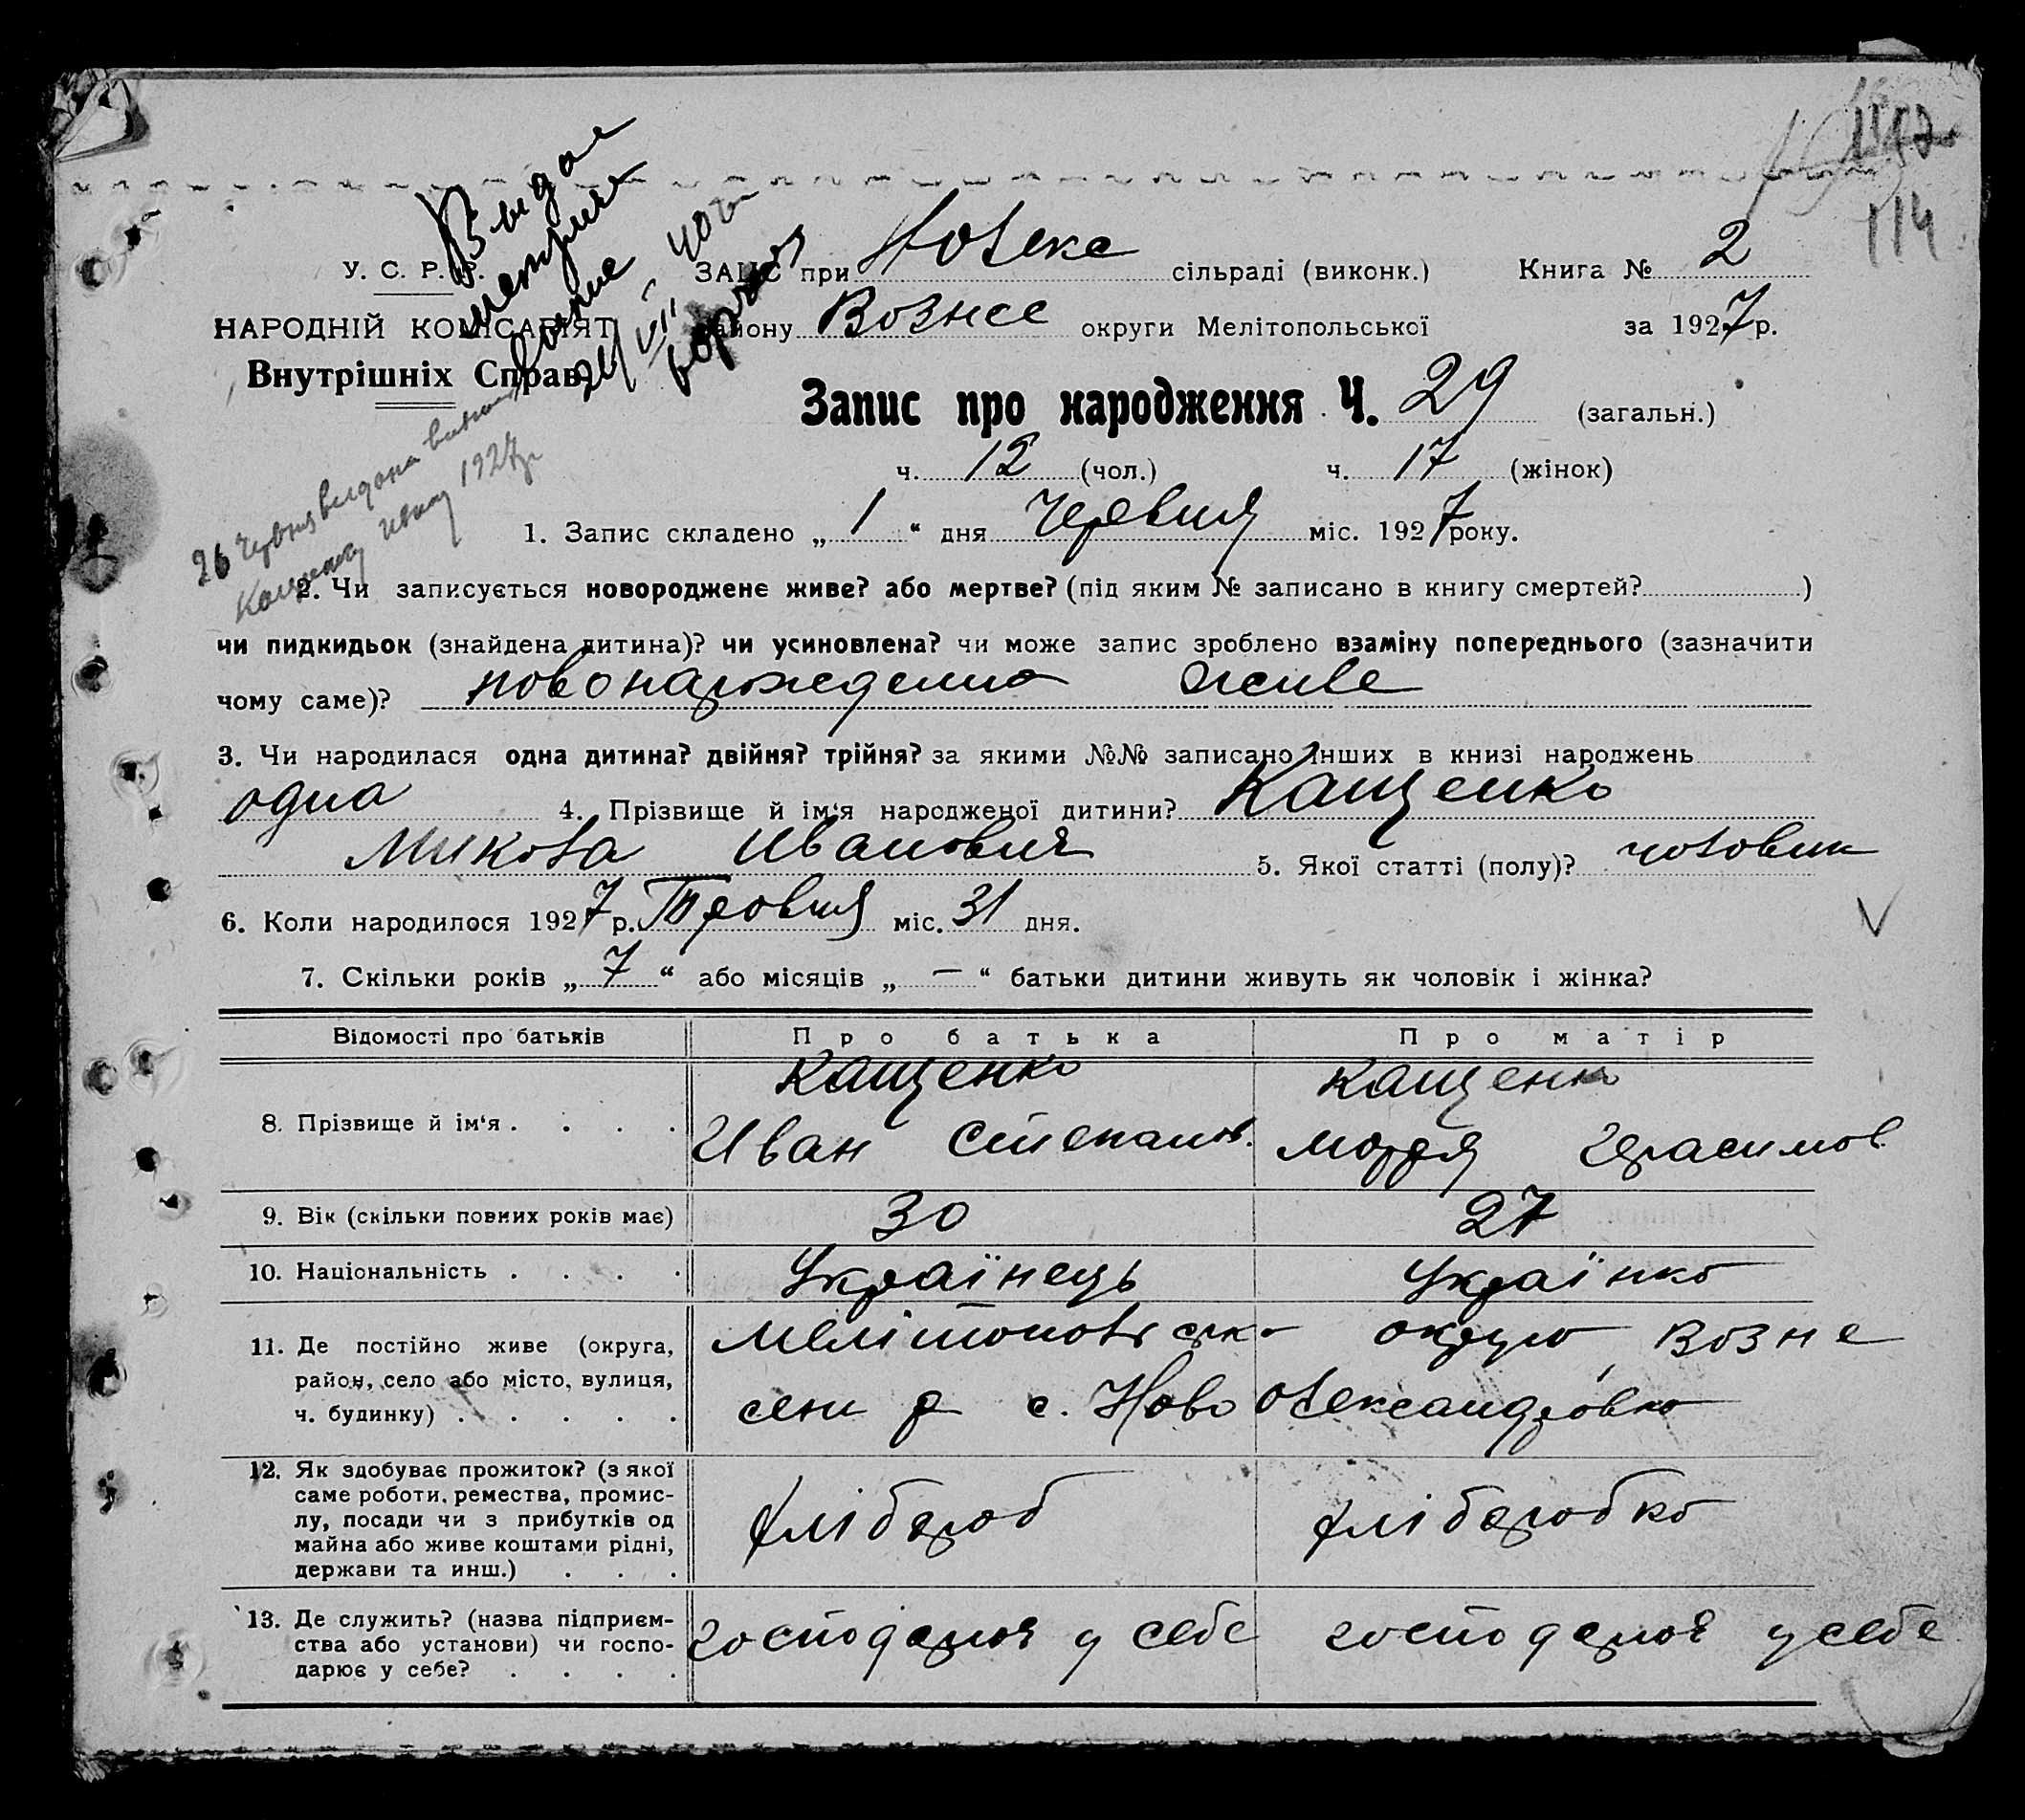 114
У. С. Р. Р.
ЗАГС при Новекс сільраді (виконк.) Книга № 2
НАРОДНІЙ КОМІСАРІЯТ
району Вознес округи Мелітопольської за 1927 р.
Внутрішніх Справ
Видане
метричне
24/VII 40
Запис про народження Ч. 29 (загальн.)
ч. 12 (чол.) ч. 17 (жінок)
26 червня видана
Кащенку Ивану 1927 р
1. Запис складено „ 1 “ дня червня міс. 1927 року.
2. Чи записується новороджене живе? або мертве? (під яким № записано в книгу смертей? )
чи пидкидьок (знайдена дитина)? чи усиновлена? чи може запис зроблено взаміну попереднього (зазначити
чому саме)? новонарожденно живе
3. Чи народилася одна дитина? двійня? трійня? за якими №№ записано інших в книзі народжень
одна 4. Прізвище й ім‘я народженої дитини? Кащенко
Микола Иванович 5. Якої статті (полу)? чоловик
6. Коли народилося 1927 р. Травня міс. 31 дня.
7. Скільки років „ 7 “ або місяців „ — “ батьки дитини живуть як чоловік і жінка?
Відомості про батьків Про батька Про матір
8. Прізвище й ім‘я . . . . Кащенко Кащенко
Иван Степанов. Марія Герасимов
9. Вік (скільки повних років має) 30 27
10. Національність . . . . Українець Українка
11. Де постійно живе (округа, Мелітопольска округа Возне
район, село або місто, вулиця,
ч. будинку) . . . . . сен р с. Ново Олександровка
12. Як здобуває прожиток? (з якої
саме роботи, ремества, промис-
лу, посади чи з прибутків од хлібароб хлібаробка
майна або живе коштами рідні,
держави та инш.) . . .
13. Де служить? (назва підприєм-
ства або установи) чи госпо- господарює у себе господарює у себе
дарює у себе? . . . .